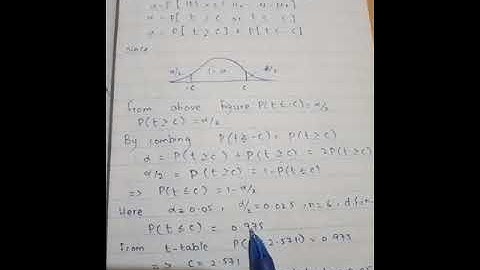 α = P[ t > c or t < c ]
α = P[ t ≥ c ] + P[ t ≤ -c ]
since
α/2 1-α α/2
-c c
from above figure P(t ≤ -c) = α/2
P(t ≥ c) = α/2
By combing P(t ≤ -c) = P(t ≥ c)
α = P(t ≥ c) + P(t ≥ c) = 2P(t ≥ c)
α/2 = P(t ≥ c) = 1-P(t ≤ c)
=> P(t ≤ c) = 1-α/2
Here α = 0.05, α/2 = 0.025, n = 6, d.f
P(t ≤ c) = 0.975
from t-table P( 2.571) = 0.975
=> c = 2.571